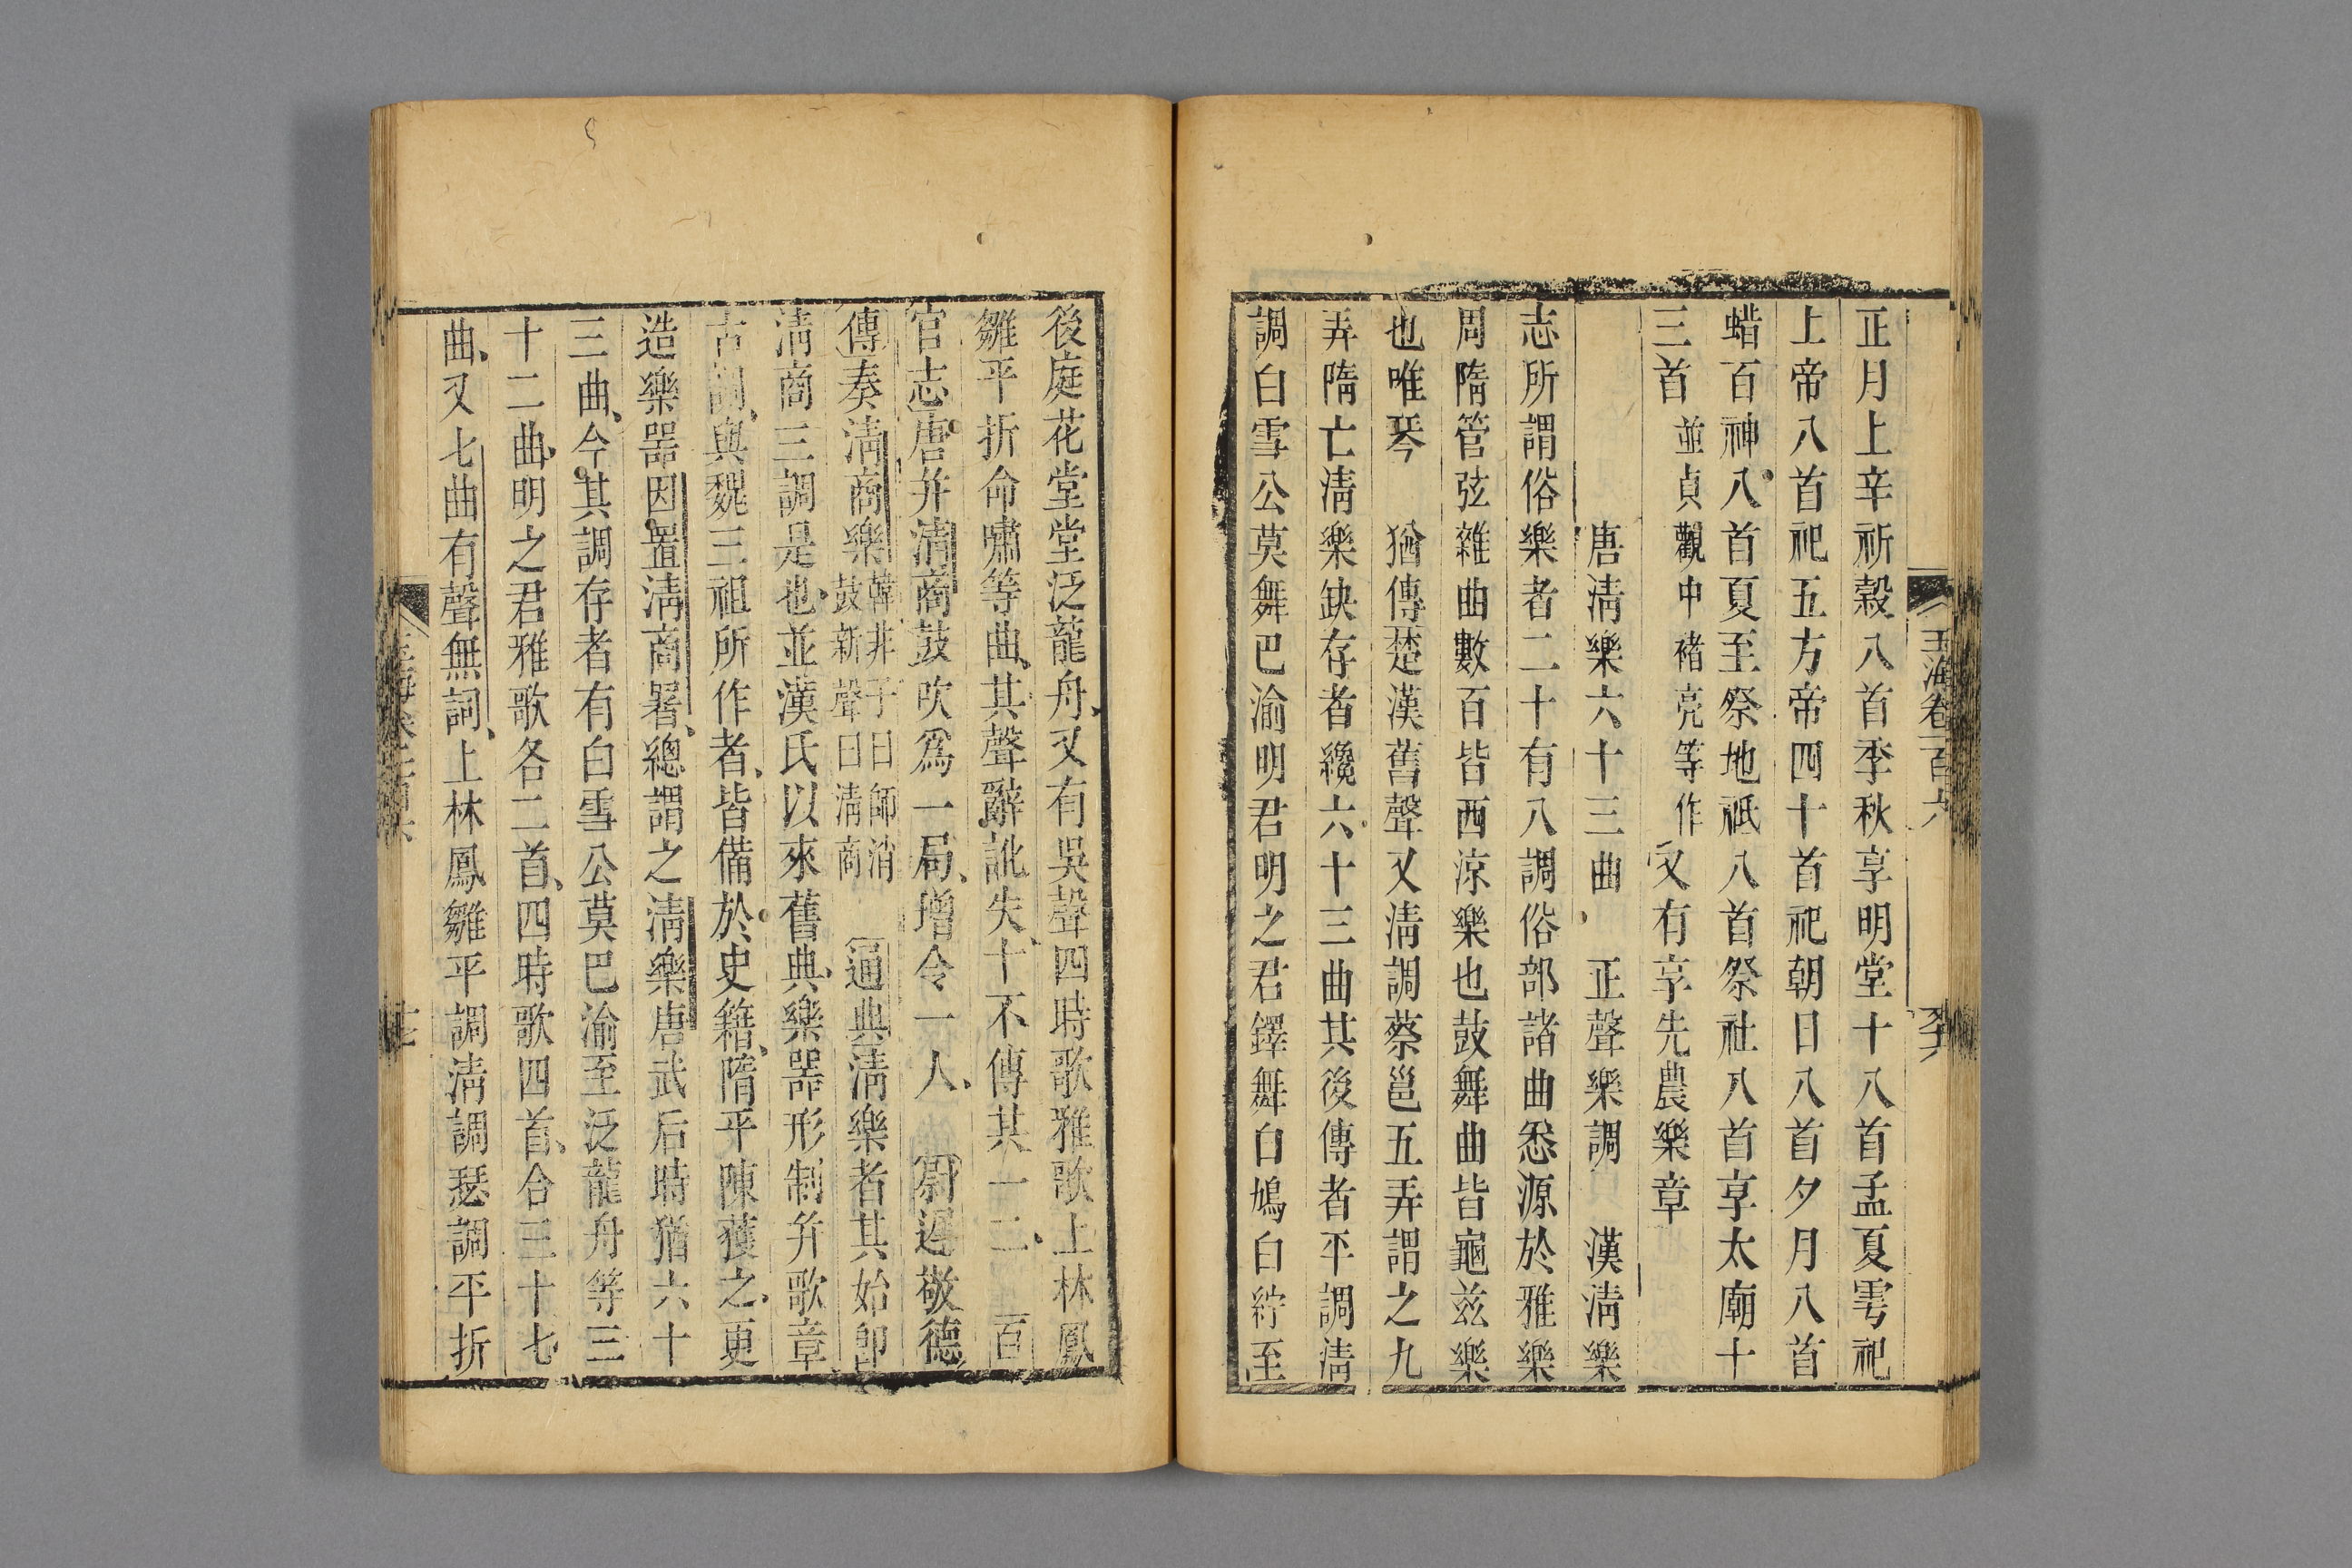 玉海卷一百六
正月上辛祈穀八首季秋享明堂十八首孟夏雩祀
上帝八首祀五方帝四十首祀朝日八首夕月八首
蜡百神八首夏至祭地祇八首祭社八首享太廟十
三首並貞觀中褚亮等作又有享先農樂章
唐淸樂六十三曲 正聲樂調 漢淸樂
志所謂俗樂者二十有八調俗部諸曲悉源於雅樂
周隋管弦雜曲數百皆西涼樂也鼓舞曲皆龜玆樂
也唯琴 猶傳楚漢舊聲又淸調蔡邕五弄謂之九
弄隋亡淸樂缺存者纔六十三曲其後傳者平調淸
調白雪公莫舞巴渝明君明之君鐸舞白鳩白紵至
後庭花堂堂泛龍舟又有吳聲四時歌雅歌上林鳳
雛平折命嘯等曲其聲辭訛失十不傳其一二 百
官志唐并淸商鼓吹爲一局增令一人 尉遲敬德
傳奏淸商樂韓非子曰師涓
鼓新聲曰淸商 通典淸樂者其始卽
淸商三調是也並漢氏以來舊典樂器形制并歌章
古調與魏三祖所作者皆備於史籍隋平陳獲之更
造樂器因置淸商署總謂之淸樂唐武后時猶六十
三曲今其調存者有白雪公莫巴渝至泛龍舟等三
十二曲明之君雅歌各二首四時歌四首合三十七
曲又七曲有聲無詞上林鳳雛平調淸調瑟調平折